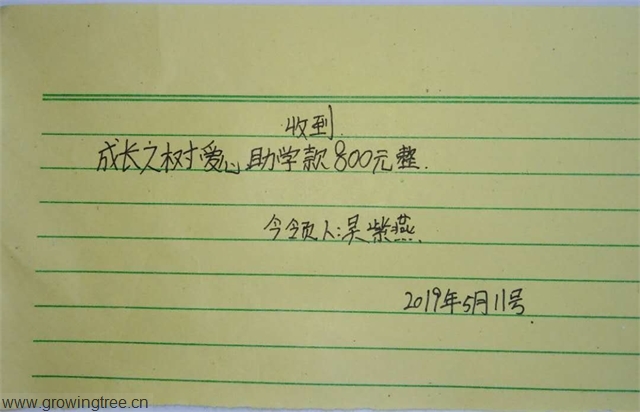 收到
成长之树爱心助学款800元整.
今领人:吴紫燕.
2019年5月11号
www.growingtree.cn